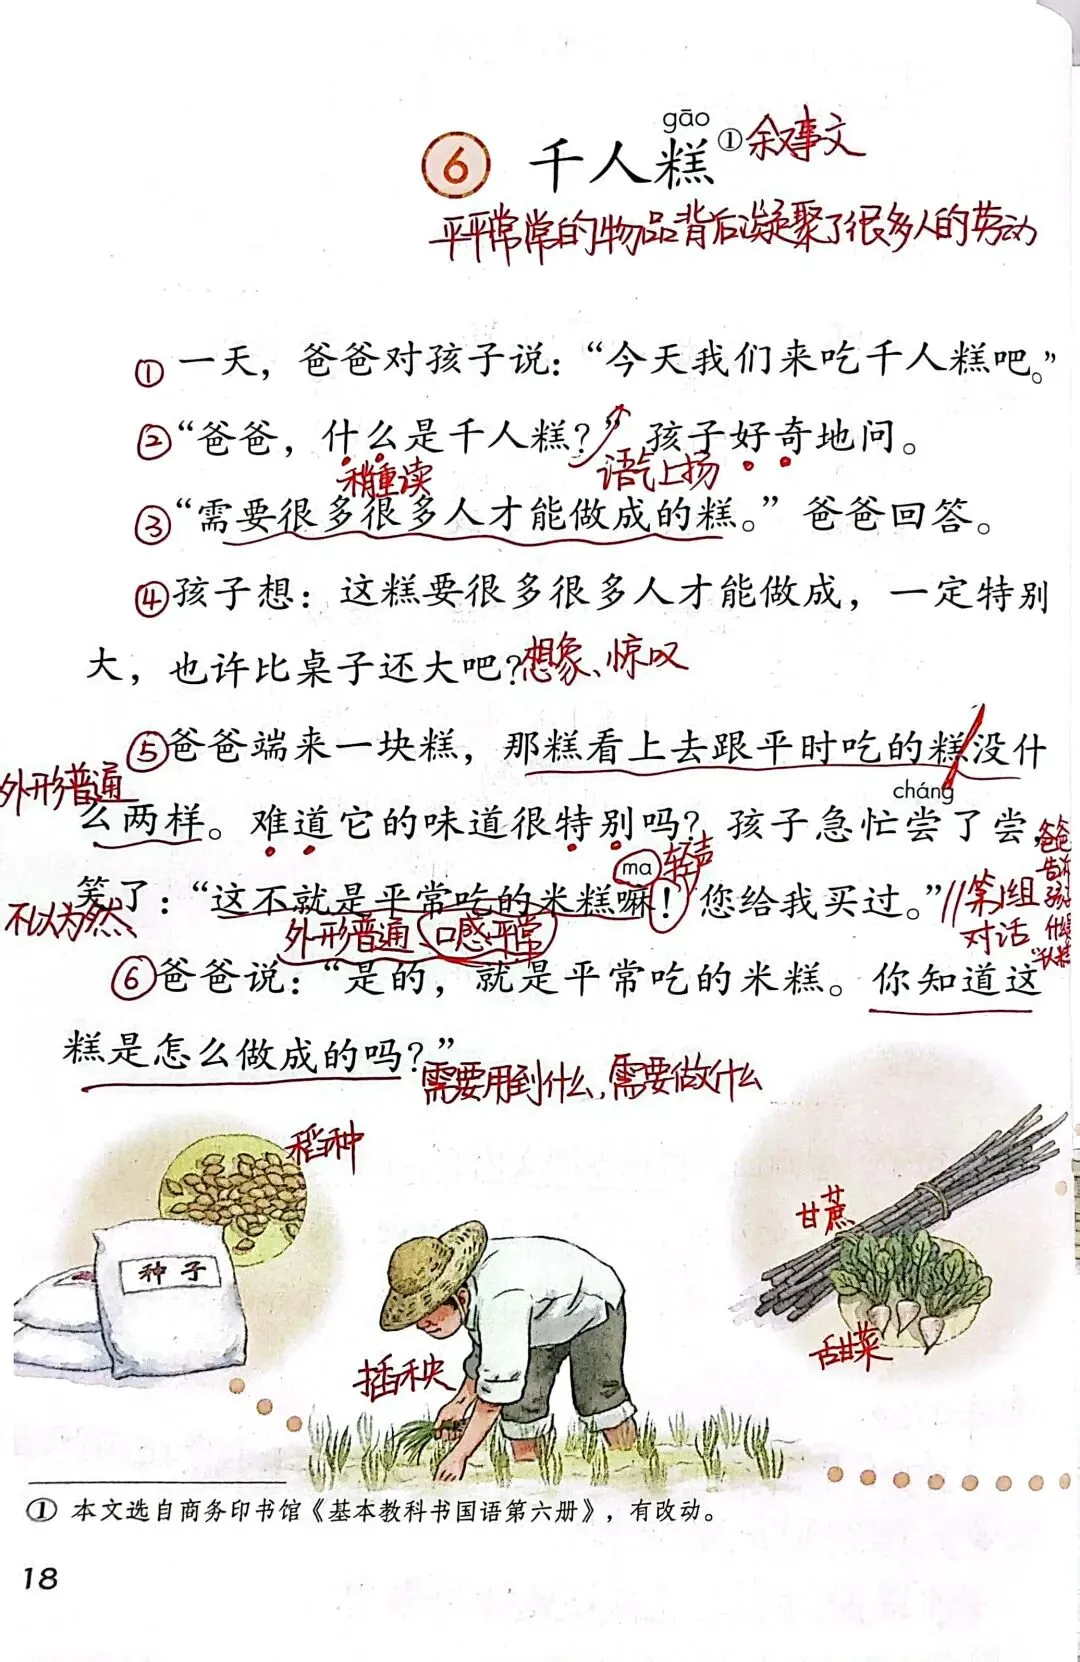 gāo
6 千人糕① 叙事文
平平常常的物品背后凝聚了很多人的劳动
①一天，爸爸对孩子说：“今天我们来吃千人糕吧。”
②“爸爸，什么是千人糕？”孩子好奇地问。
稍重读 语气上扬
③“需要很多很多人才能做成的糕。”爸爸回答。
④孩子想：这糕要很多很多人才能做成，一定特别
大，也许比桌子还大吧？想象、惊叹
⑤爸爸端来一块糕，那糕看上去跟平时吃的糕没什
外形普通 cháng
么两样。难道它的味道很特别吗？孩子急忙尝了尝，
ma 轻声
笑了：“这不就是平常吃的米糕嘛！您给我买过。” 第1组
不以为然、 外形普通 口感平常 对话
爸爸
告诉
孩子
什么是
⑥爸爸说：“是的，就是平常吃的米糕。你知道这
糕是怎么做成的吗？”
需要用到什么，需要做什么
稻种
种子
甘蔗
甜菜
插秧
① 本文选自商务印书馆《基本教科书国语第六册》，有改动。
18